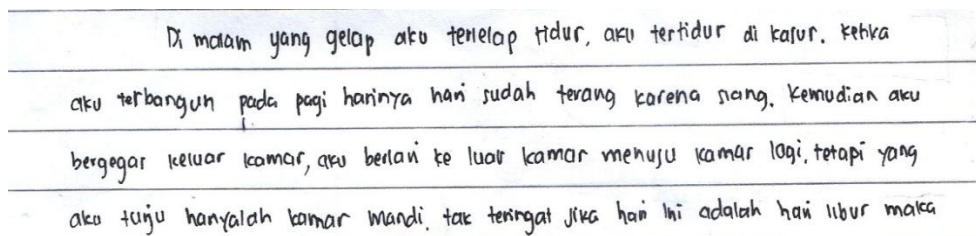 Di malam yang gelap aku terlelap tidur, aku tertidur di kasur. Ketika
aku terbangun pada pagi harinya hari sudah terang karena siang. Kemudian aku
bergegas keluar kamar, aku berlari ke luar kamar menuju kamar lagi, tetapi yang
aku tunju hanyalah kamar mandi. tak teringat jika hari ini adalah hari libur maka